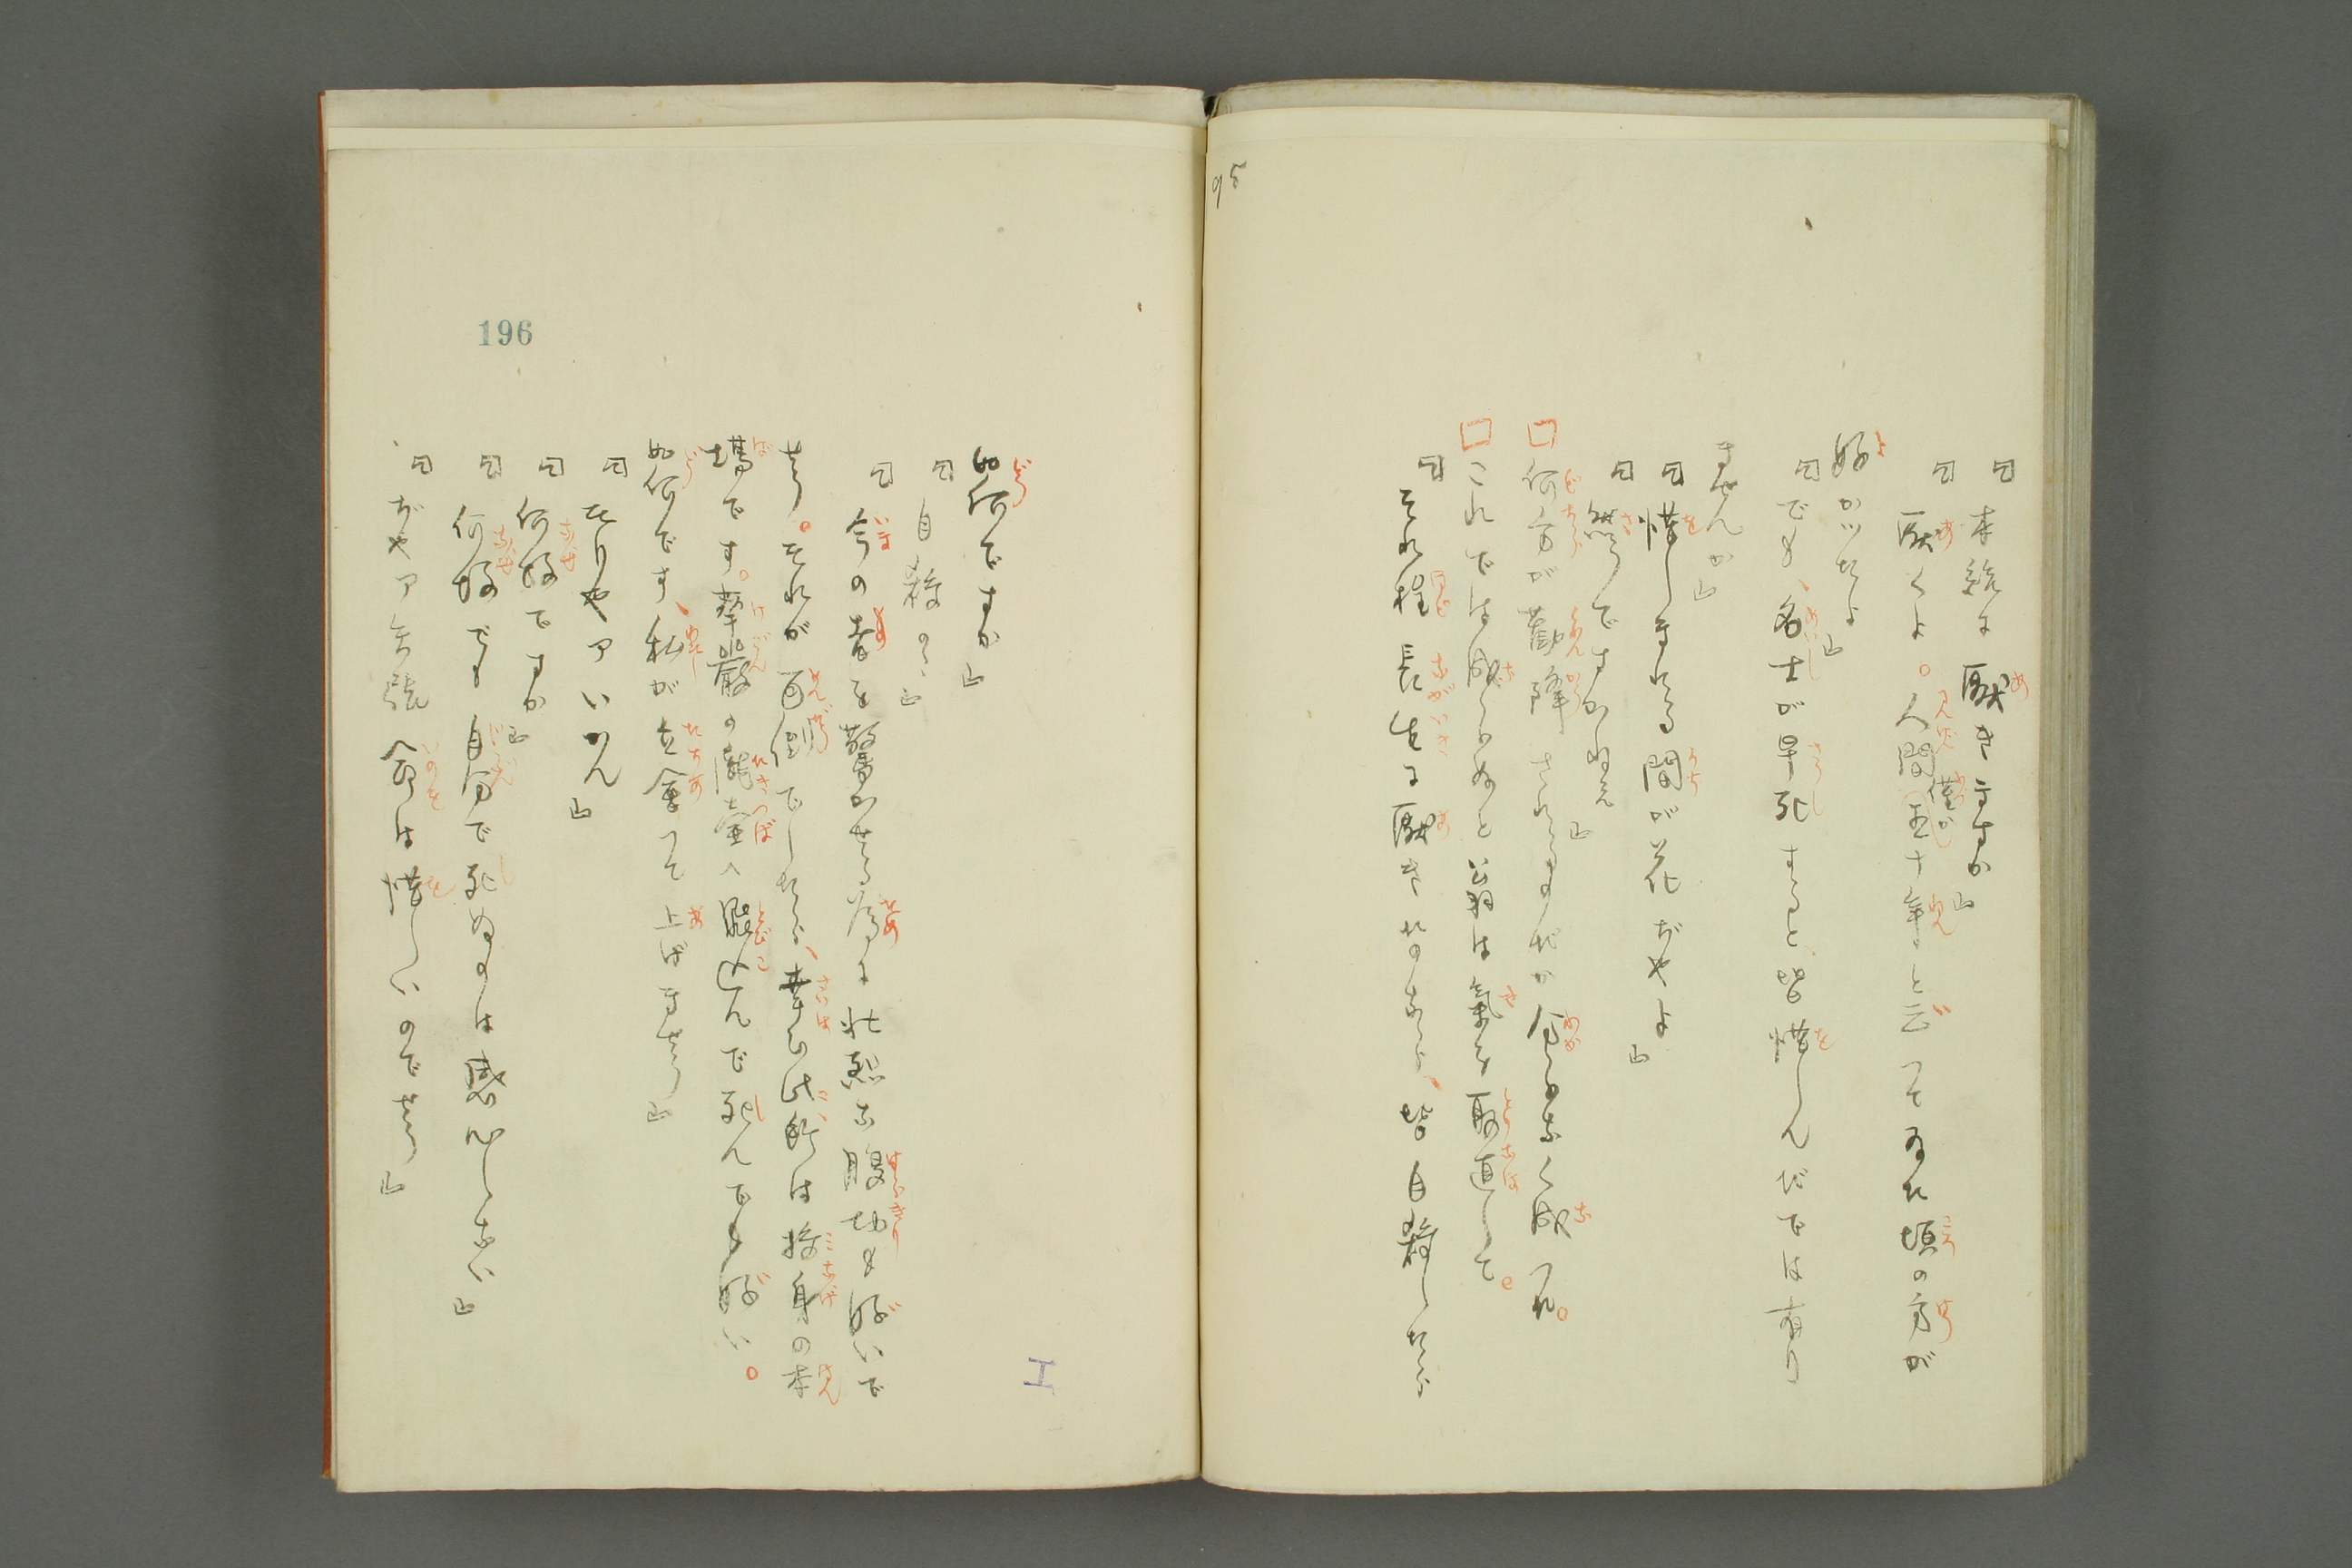 95
「本統に厭きますか」
「厭くよ。人間僅か五十年と云つてゐた頃の方が
好かつたよ」
「でも、名士が早死すると皆惜しんだでは有り
ませんか」
「惜しまれる間が花ぢやよ」
「然うですかねえ」
何方が勸降されるのだか分らなく成つた。
これでは成らぬと翁は氣を取直して。
「それ程長生に厭きたのなら、皆自殺したら
如何ですか」
「自殺の」
「今の者を驚かせる為に壮烈な腹切も好いで
せう。それが面倒でしたら、幸ひ此所は投身の本
場です。華嚴の瀧壷へ飛込んで死んでも好い。
如何です、私が立會つて上げませう」
「そりやアいかん」
「何故ですか」
「何故でも自分で死ぬのは感心しない」
「ぢやア矢張命は惜しいのでせう」
196